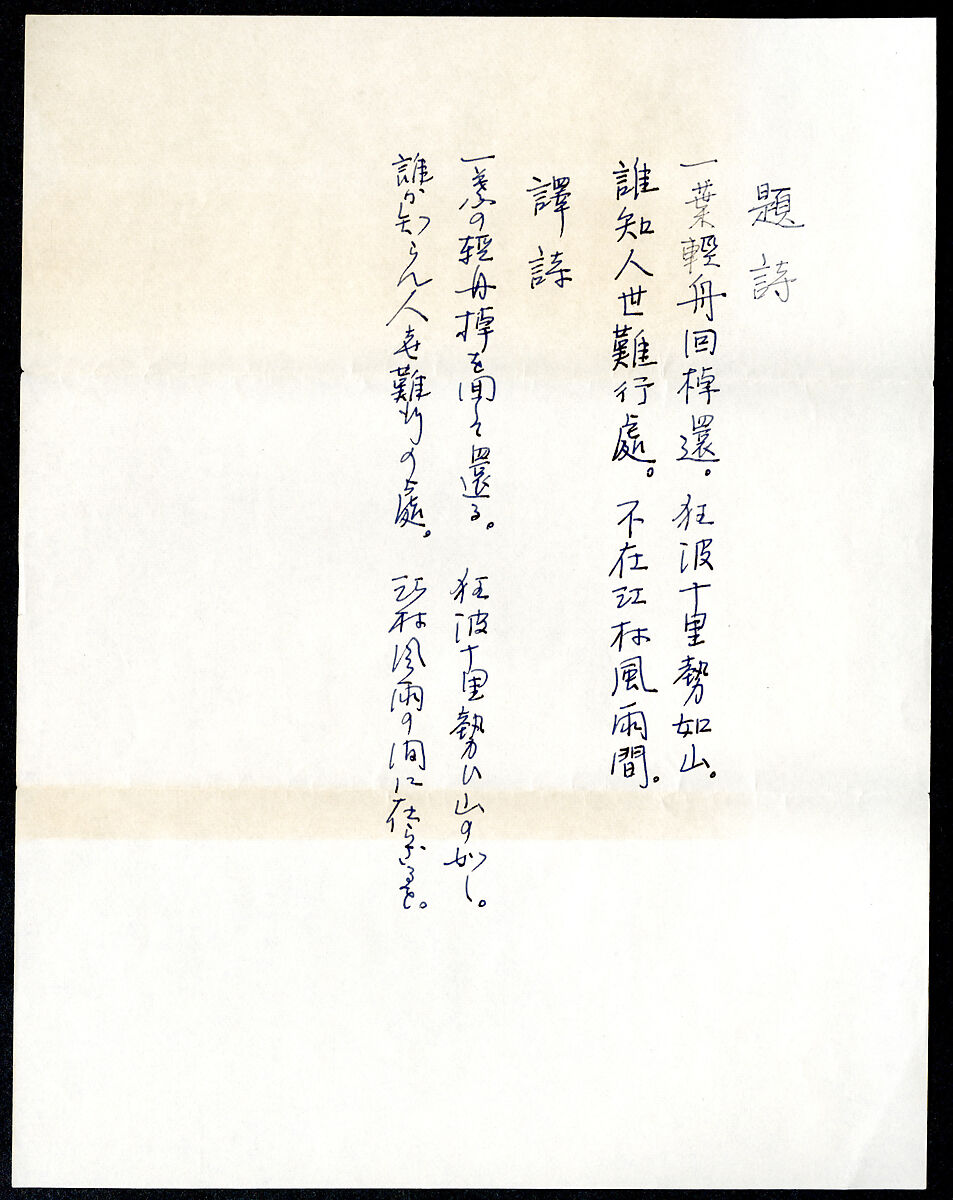 題詩
一葉輕舟回棹還。狂波十里勢如山。
誰知人世難行處。不在江林風雨間。
譯詩
一葉の輕舟棹を回して還る。狂波十里勢ひ山の如し。
誰か知らん人世難行の處。江林風雨の間に在らざるを。